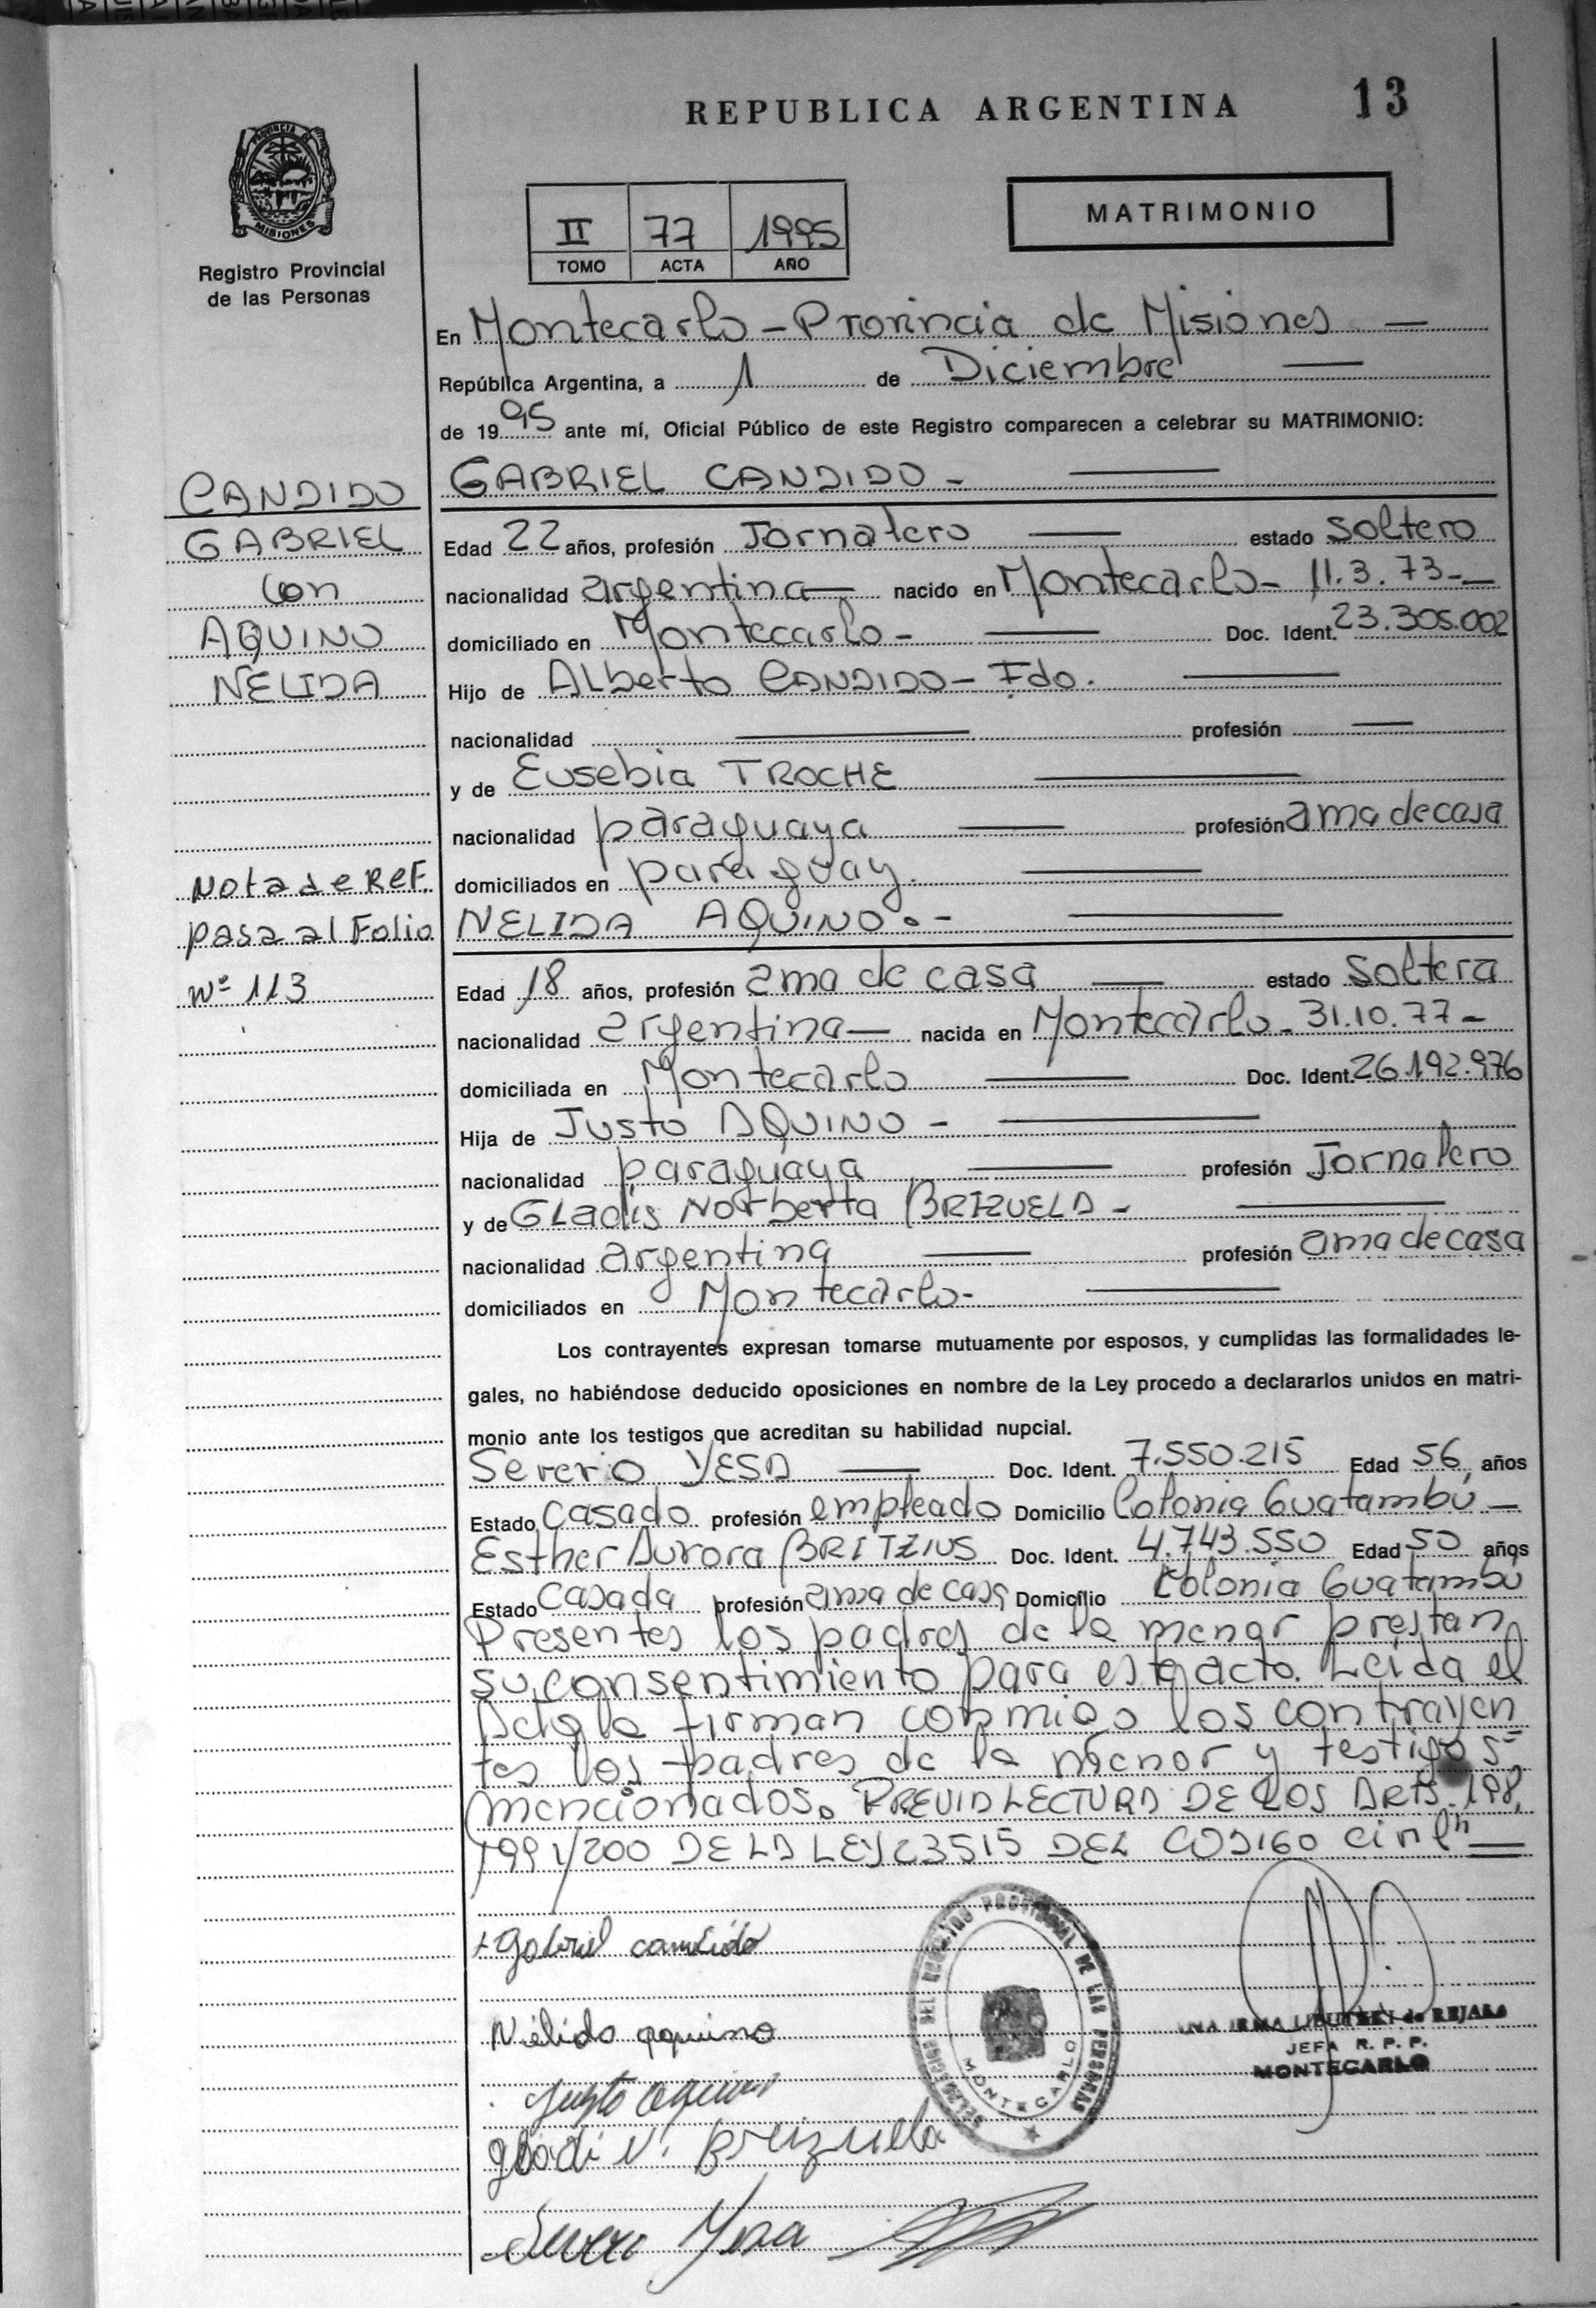 REPUBLICA ARGENTINA 13
PROVINCIA DE MISIONES
Registro Provincial
de las Personas
II 77 1995
TOMO ACTA AÑO
MATRIMONIO
En Montecarlo - Provincia de Misiones —
República Argentina, a 1 de Diciembre —
de 1995 ante mí, Oficial Público de este Registro comparecen a celebrar su MATRIMONIO:
CANDIDO
GABRIEL
con
AQUINO
NELIDA
Nota de Ref.
pasa al Folio
Nº 113
GABRIEL CANDIDO - —
Edad 22 años, profesión Jornalero — estado soltero
nacionalidad argentina — nacido en Montecarlo - 11.3.73 - —
domiciliado en Montecarlo - — Doc. Ident. 23.305.002
Hijo de Alberto CANDIDO - Fdo. —
nacionalidad — profesión —
y de Eusebia TROCHE —
nacionalidad paraguaya — profesión ama de casa
domiciliados en paraguay. —
NELIDA AQUINO. - —
Edad 18 años, profesión ama de casa — estado soltera
nacionalidad argentina — nacida en Montecarlo - 31.10.77 -
domiciliada en Montecarlo — Doc. Ident. 26.192.976
Hija de Justo AQUINO - —
nacionalidad paraguaya — profesión Jornalero
y de Gladis Norberta BRIZUELA - —
nacionalidad argentina — profesión ama de casa
domiciliados en Montecarlo - —
Los contrayentes expresan tomarse mutuamente por esposos, y cumplidas las formalidades le-
gales, no habiéndose deducido oposiciones en nombre de la Ley procedo a declararlos unidos en matri-
monio ante los testigos que acreditan su habilidad nupcial.
Severo YESA — Doc. Ident. 7.550.215 Edad 56, años
Estado casado profesión empleado Domicilio Colonia Guatambú —
Esther Aurora BRITZIUS Doc. Ident. 4.743.550 Edad 50 años
Estado casada profesión ama de casa Domicilio Colonia Guatambú
Presentes los padres de la menor prestan
su consentimiento para este acto. Leida el
Acta la firman conmigo los contrayen
tes los padres de la menor y testigos
mencionados. PREVIA LECTURA DE LOS ARTS. 198,
199 y 200 DE LA LEY 23515 DEL CODIGO Civil —
Gabriel candido
Nélida aquino
Justo Aquino
gladi N. Brizuela
DELEGACION DEL REGISTRO PROVINCIAL DE LAS PERSONAS
MONTECARLO
IRMA de REJALA
JEFA R. P. P.
MONTECARLO
Severo Yesa